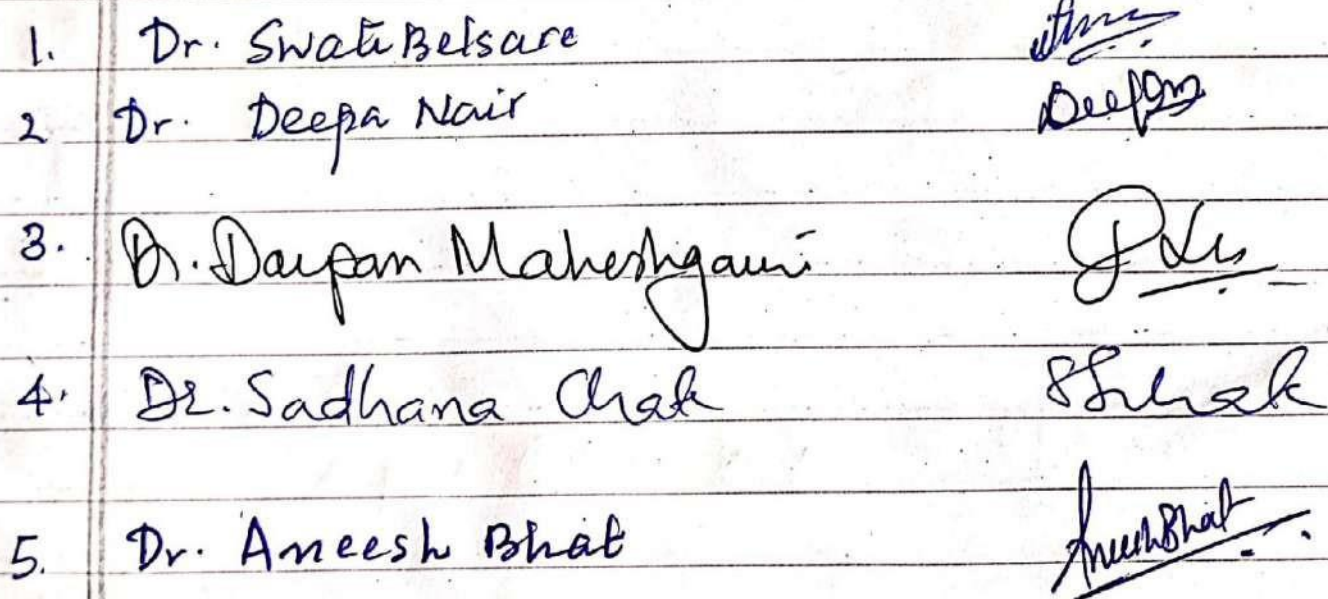 1. Dr. Swati Belsare
2 Dr. Deepa Nair Deepa
3. Dr. Darpan Maheshgauri
4. Dr. Sadhana Chak
5. Dr. Aneesh Bhat AneeshBhat